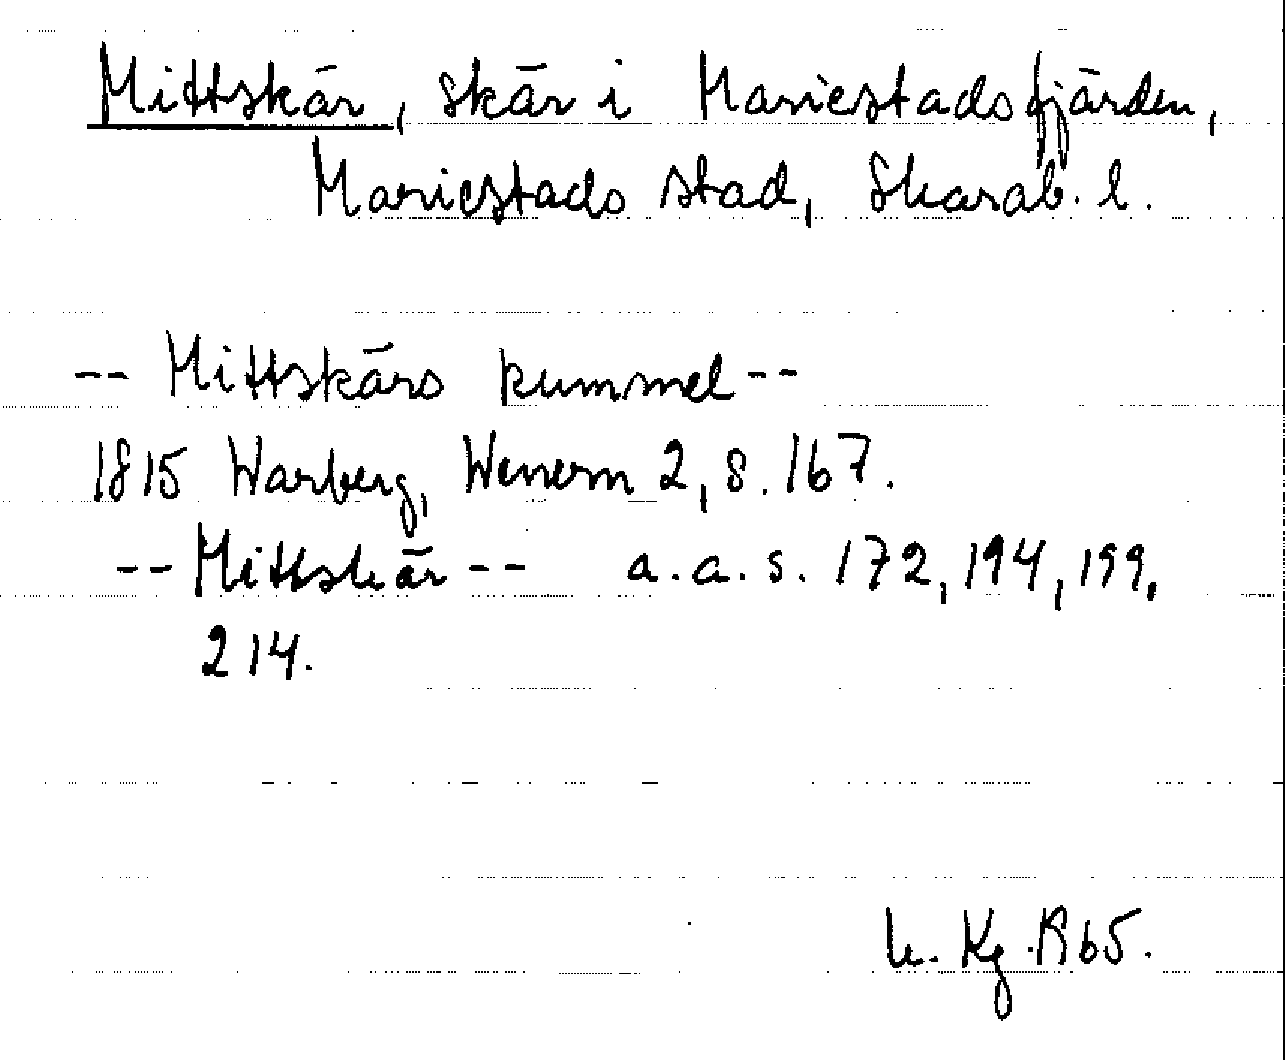 Mittskär, skär i Mariestadsfjärden,
Mariestads stad, Skarab. l.
-- Mittskärs kummel --
1815 Warberg, Wenern 2, s. 167.
-- Mittskär -- a.a.s. 172, 194, 199,
214.
Kg. R 65.